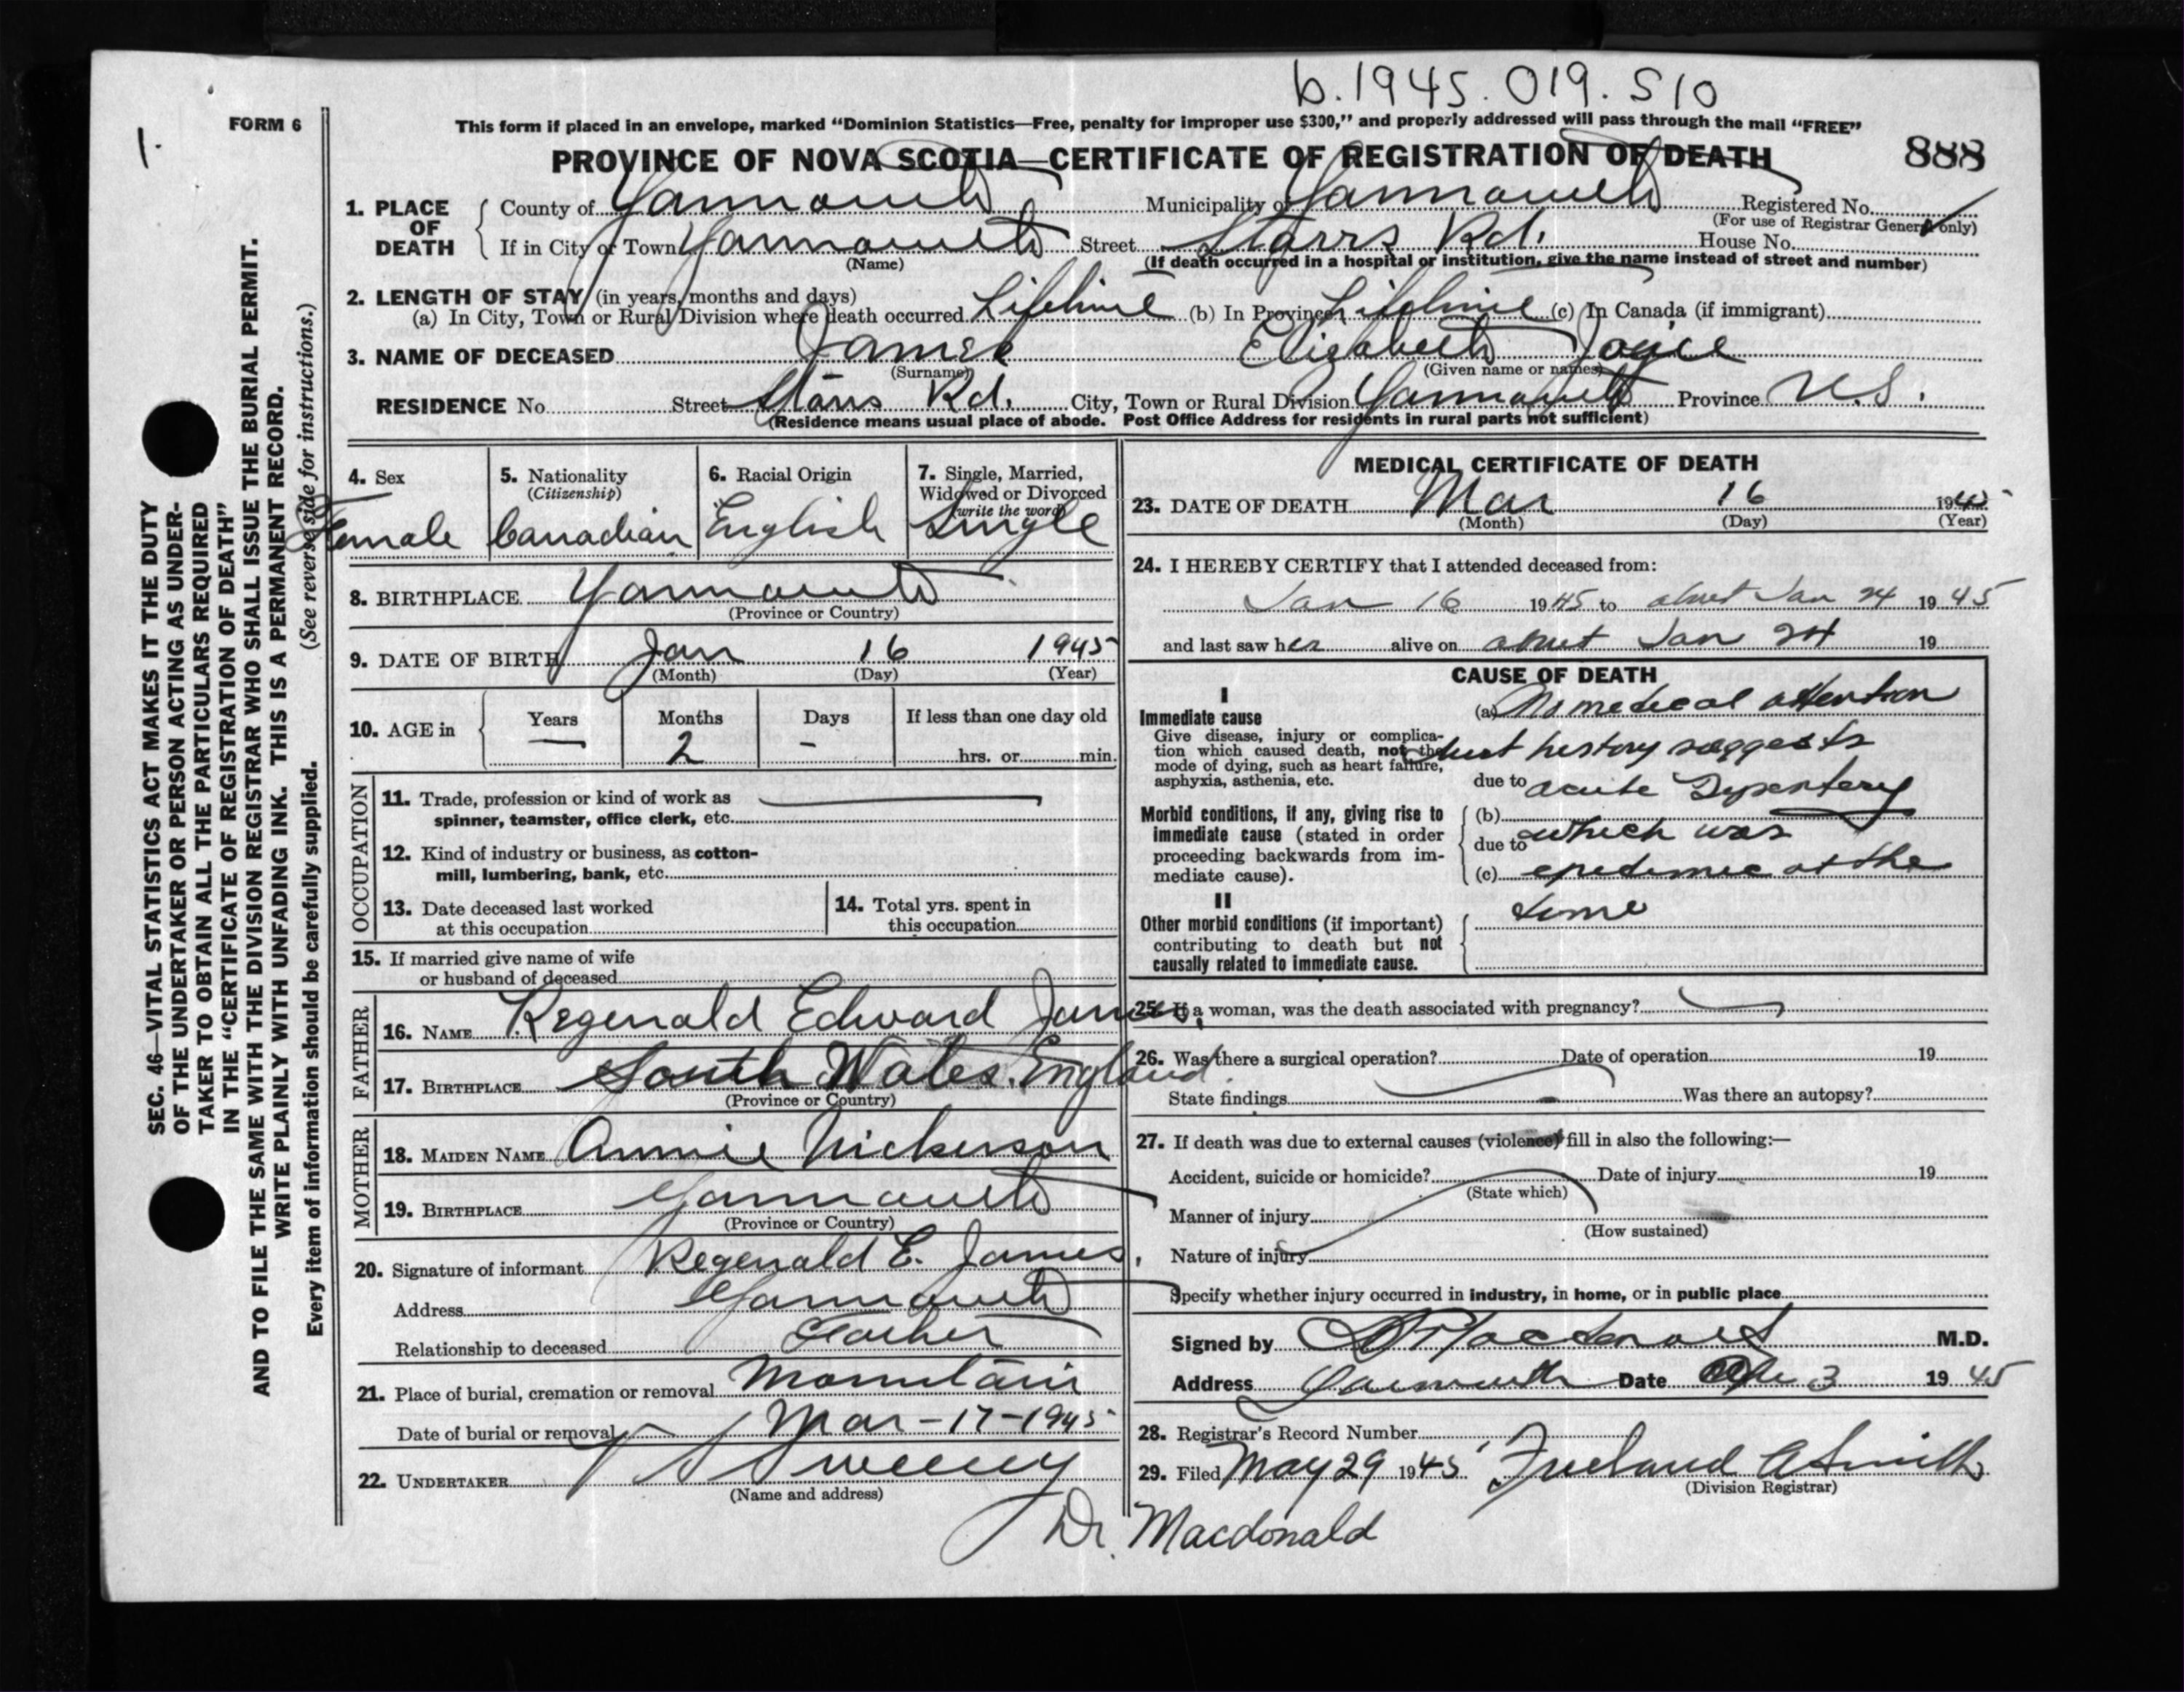 b.1945.019.510
FORM 6
1.
This form if placed in an envelope, marked "Dominion Statistics—Free, penalty for improper use $300," and properly addressed will pass through the mail "FREE"
PROVINCE OF NOVA SCOTIA—CERTIFICATE OF REGISTRATION OF DEATH
888
1. PLACE OF DEATH { County of Yarmouth Municipality of Yarmouth Registered No.
(For use of Registrar General only)
If in City or Town Yarmouth Street Starrs Rd. House No.
(Name) (If death occurred in a hospital or institution, give the name instead of street and number)
2. LENGTH OF STAY (in years, months and days)
(a) In City, Town or Rural Division where death occurred Lifetime (b) In Province Lifetime (c) In Canada (if immigrant)
3. NAME OF DECEASED James Elizabeth Joyce
(Surname) (Given name or names)
RESIDENCE No. Street Starrs Rd. City, Town or Rural Division Yarmouth Province N.S.
(Residence means usual place of abode. Post Office Address for residents in rural parts not sufficient)
SEC. 46—VITAL STATISTICS ACT MAKES IT THE DUTY
OF THE UNDERTAKER OR PERSON ACTING AS UNDER-
TAKER TO OBTAIN ALL THE PARTICULARS REQUIRED
IN THE "CERTIFICATE OF REGISTRATION OF DEATH"
AND TO FILE THE SAME WITH THE DIVISION REGISTRAR WHO SHALL ISSUE THE BURIAL PERMIT.
WRITE PLAINLY WITH UNFADING INK. THIS IS A PERMANENT RECORD.
Every item of information should be carefully supplied. (See reverse side for instructions.)
4. Sex
Female
5. Nationality
(Citizenship)
Canadian
6. Racial Origin
English
7. Single, Married,
Widowed or Divorced
(write the word)
Single
8. BIRTHPLACE Yarmouth
(Province or Country)
9. DATE OF BIRTH Jan 16 1945
(Month) (Day) (Year)
10. AGE in { Years Months Days If less than one day old
— 2 - hrs. or min.
OCCUPATION
11. Trade, profession or kind of work as
spinner, teamster, office clerk, etc.
12. Kind of industry or business, as cotton-
mill, lumbering, bank, etc.
13. Date deceased last worked
at this occupation
14. Total yrs. spent in
this occupation
15. If married give name of wife
or husband of deceased
FATHER
16. NAME Regenald Edward James,
17. BIRTHPLACE South Wales, England.
(Province or Country)
MOTHER
18. MAIDEN NAME Annie Nickerson
19. BIRTHPLACE Yarmouth
(Province or Country)
20. Signature of informant Regenald E. James,
Address Yarmouth
Relationship to deceased Father
21. Place of burial, cremation or removal Mountain
Date of burial or removal Mar-17-1945
22. UNDERTAKER V S Sweeny
(Name and address)
MEDICAL CERTIFICATE OF DEATH
23. DATE OF DEATH Mar 16 1945
(Month) (Day) (Year)
24. I HEREBY CERTIFY that I attended deceased from:
Jan 16 1945 to about Jan 24 1945
and last saw her alive on about Jan 24 19
CAUSE OF DEATH
I
Immediate cause
Give disease, injury or complica-
tion which caused death, not the
mode of dying, such as heart failure,
asphyxia, asthenia, etc.
(a) No medical attention
but history suggests
due to acute Dysentery
Morbid conditions, if any, giving rise to
immediate cause (stated in order
proceeding backwards from im-
mediate cause).
(b)
due to which was
(c) epidemic at the
time
II
Other morbid conditions (if important)
contributing to death but not
causally related to immediate cause.
25. If a woman, was the death associated with pregnancy?
26. Was there a surgical operation? Date of operation 19
State findings Was there an autopsy?
27. If death was due to external causes (violence) fill in also the following:—
Accident, suicide or homicide? Date of injury 19
(State which)
Manner of injury
(How sustained)
Nature of injury
Specify whether injury occurred in industry, in home, or in public place
Signed by Macdonald M.D.
Address Yarmouth Date Apr 3 1945
28. Registrar's Record Number
29. Filed May 29 1945. Freeland A Smith
(Division Registrar)
Dr. Macdonald